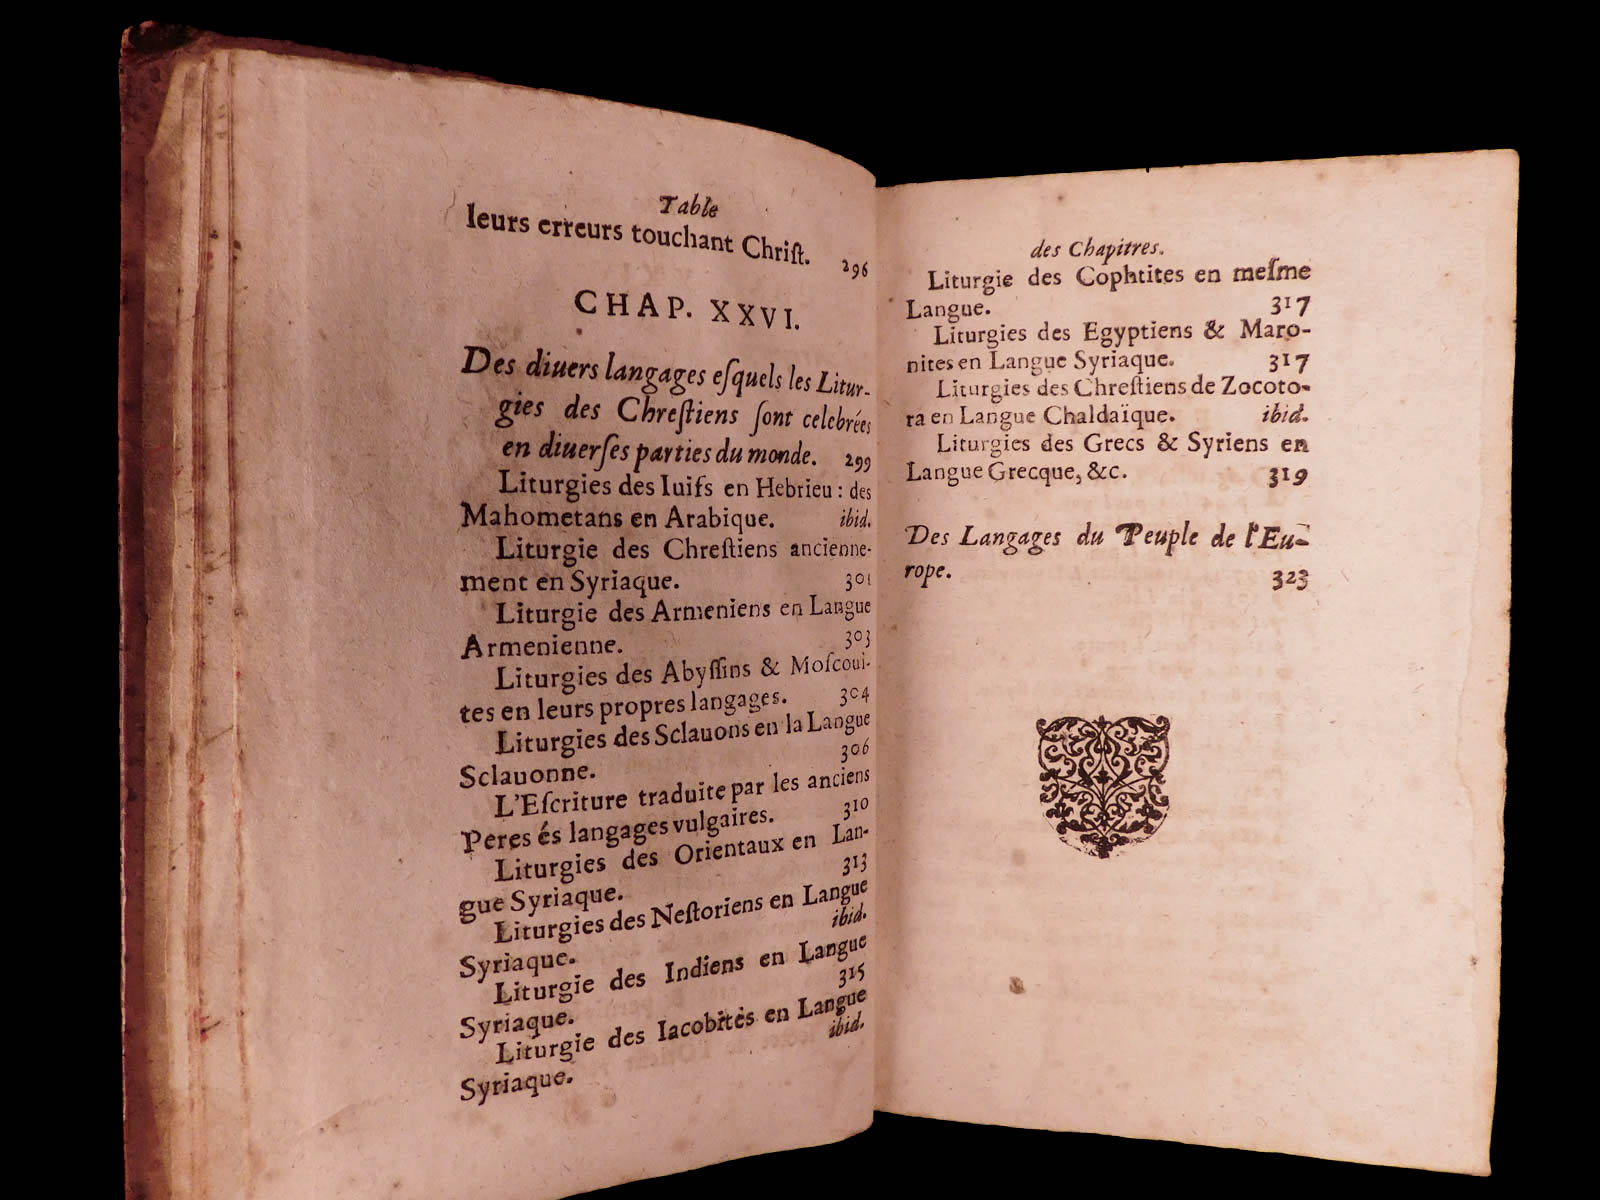 Table
leurs erreurs touchant Chriſt. 296
CHAP. XXVI.
Des diuers langages eſquels les Litur-
gies des Chreſtiens ſont celebrées
en diuerſes parties du monde. 299
Liturgies des Iuifs en Hebrieu : des
Mahometans en Arabique. ibid.
Liturgie des Chreſtiens ancienne-
ment en Syriaque. 301
Liturgie des Armeniens en Langue
Armenienne. 303
Liturgies des Abyſſins & Moſcoui-
tes en leurs propres langages. 304
Liturgies des Sclauons en la Langue
Sclauonne. 306
L'Eſcriture traduite par les anciens
Peres és langages vulgaires. 310
Liturgies des Orientaux en Lan-
gue Syriaque. 313
Liturgies des Neſtoriens en Langue
Syriaque. ibid.
Liturgie des Indiens en Langue
Syriaque. 315
Liturgie des Iacobites en Langue
Syriaque. ibid.
des Chapitres.
Liturgie des Cophtites en meſme
Langue. 317
Liturgies des Egyptiens & Maro-
nites en Langue Syriaque. 317
Liturgies des Chreſtiens de Zocoto-
ra en Langue Chaldaïque. ibid.
Liturgies des Grecs & Syriens en
Langue Grecque, &c. 319
Des Langages du Peuple de l'Eu-
rope. 323